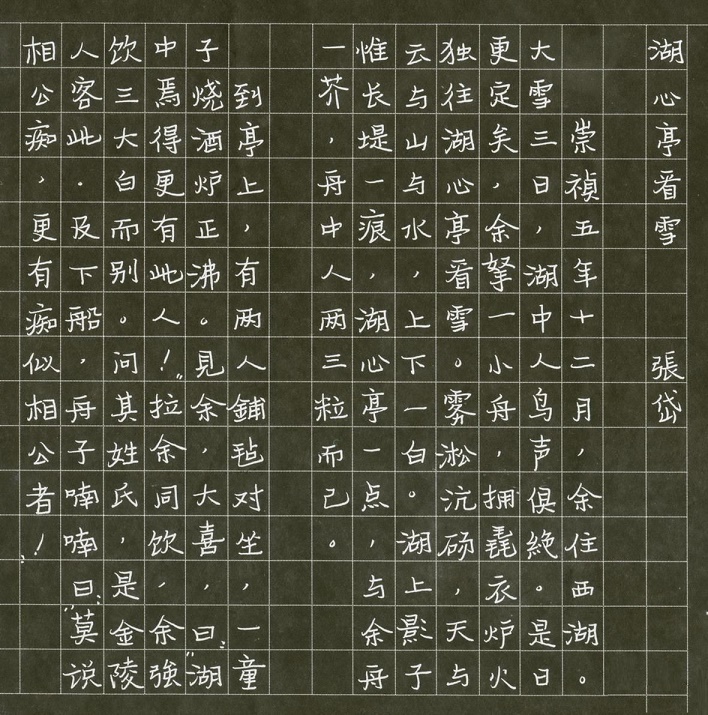 湖心亭看雪 張岱
崇禎五年十二月，余住西湖。
大雪三日，湖中人鸟声俱絶。是日
更定矣，余拏一小舟，拥毳衣炉火
独往湖心亭看雪。雾淞沆砀，天与
云与山与水，上下一白。湖上影子
惟长堤一痕，湖心亭一点，与余舟
一芥，舟中人两三粒而已。
到亭上，有两人鋪毡对坐，一童
子烧酒炉正沸。見余，大喜，曰："湖
中焉得更有此人！"拉余同饮，余強
饮三大白而别。问其姓氏，是金陵
人客此．及下船，舟子喃喃曰："莫说
相公痴，更有痴似相公者！"